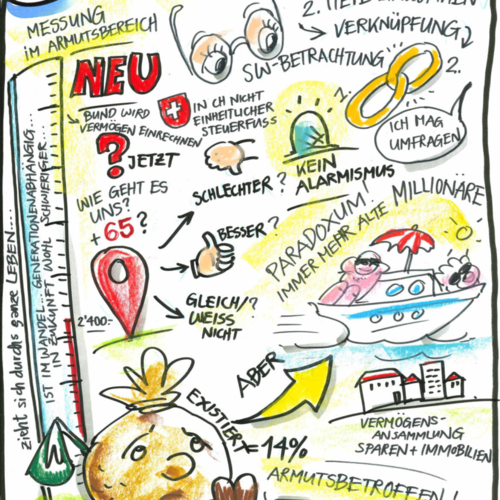 MESSUNG
IM ARMUTSBEREICH
2.
VERKNÜPFUNG
SW-BETRACHTUNG
2.
1.
ICH MAG
UMFRAGEN
NEU
BUND WIRD
VERMÖGEN EINRECHNEN
IN CH NICHT
EINHEITLICHER
STEUERFUSS
? JETZT
KEIN
ALARMISMUS
WIE GEHT ES
UNS?
+ 65?
SCHLECHTER?
BESSER?
GLEICH/?
WEISS
NICHT
PARADOXUM!
IMMER MEHR ALTE MILLIONÄRE
zieht sich durchs ganze LEBEN....
IST IM WANDEL... GENERATIONENABHÄNGIG...
IN ZUKUNFT WOHL SCHWIERIGER...
2'400.-
ABER
EXISTIERT
= 14%
ARMUTSBETROFFEN!
VERMÖGENS-
ANSAMMLUNG
SPAREN + IMMOBILIEN